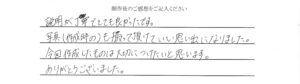 制作後のご感想をご記入ください
説明が丁寧でとても良かったです。
写真(作成時の)も撮って頂けていい思い出になりました。
今回作成したものは大切につけたいと思います。
ありがとうございました。